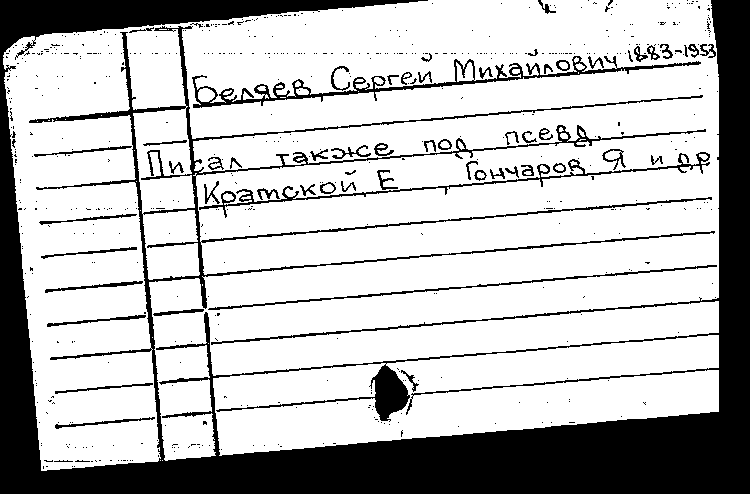 Беляев, Сергей Михайлович, 1883-1953
Писал также под псевд.:
Кратской, Е , Гончаров, Я и др.